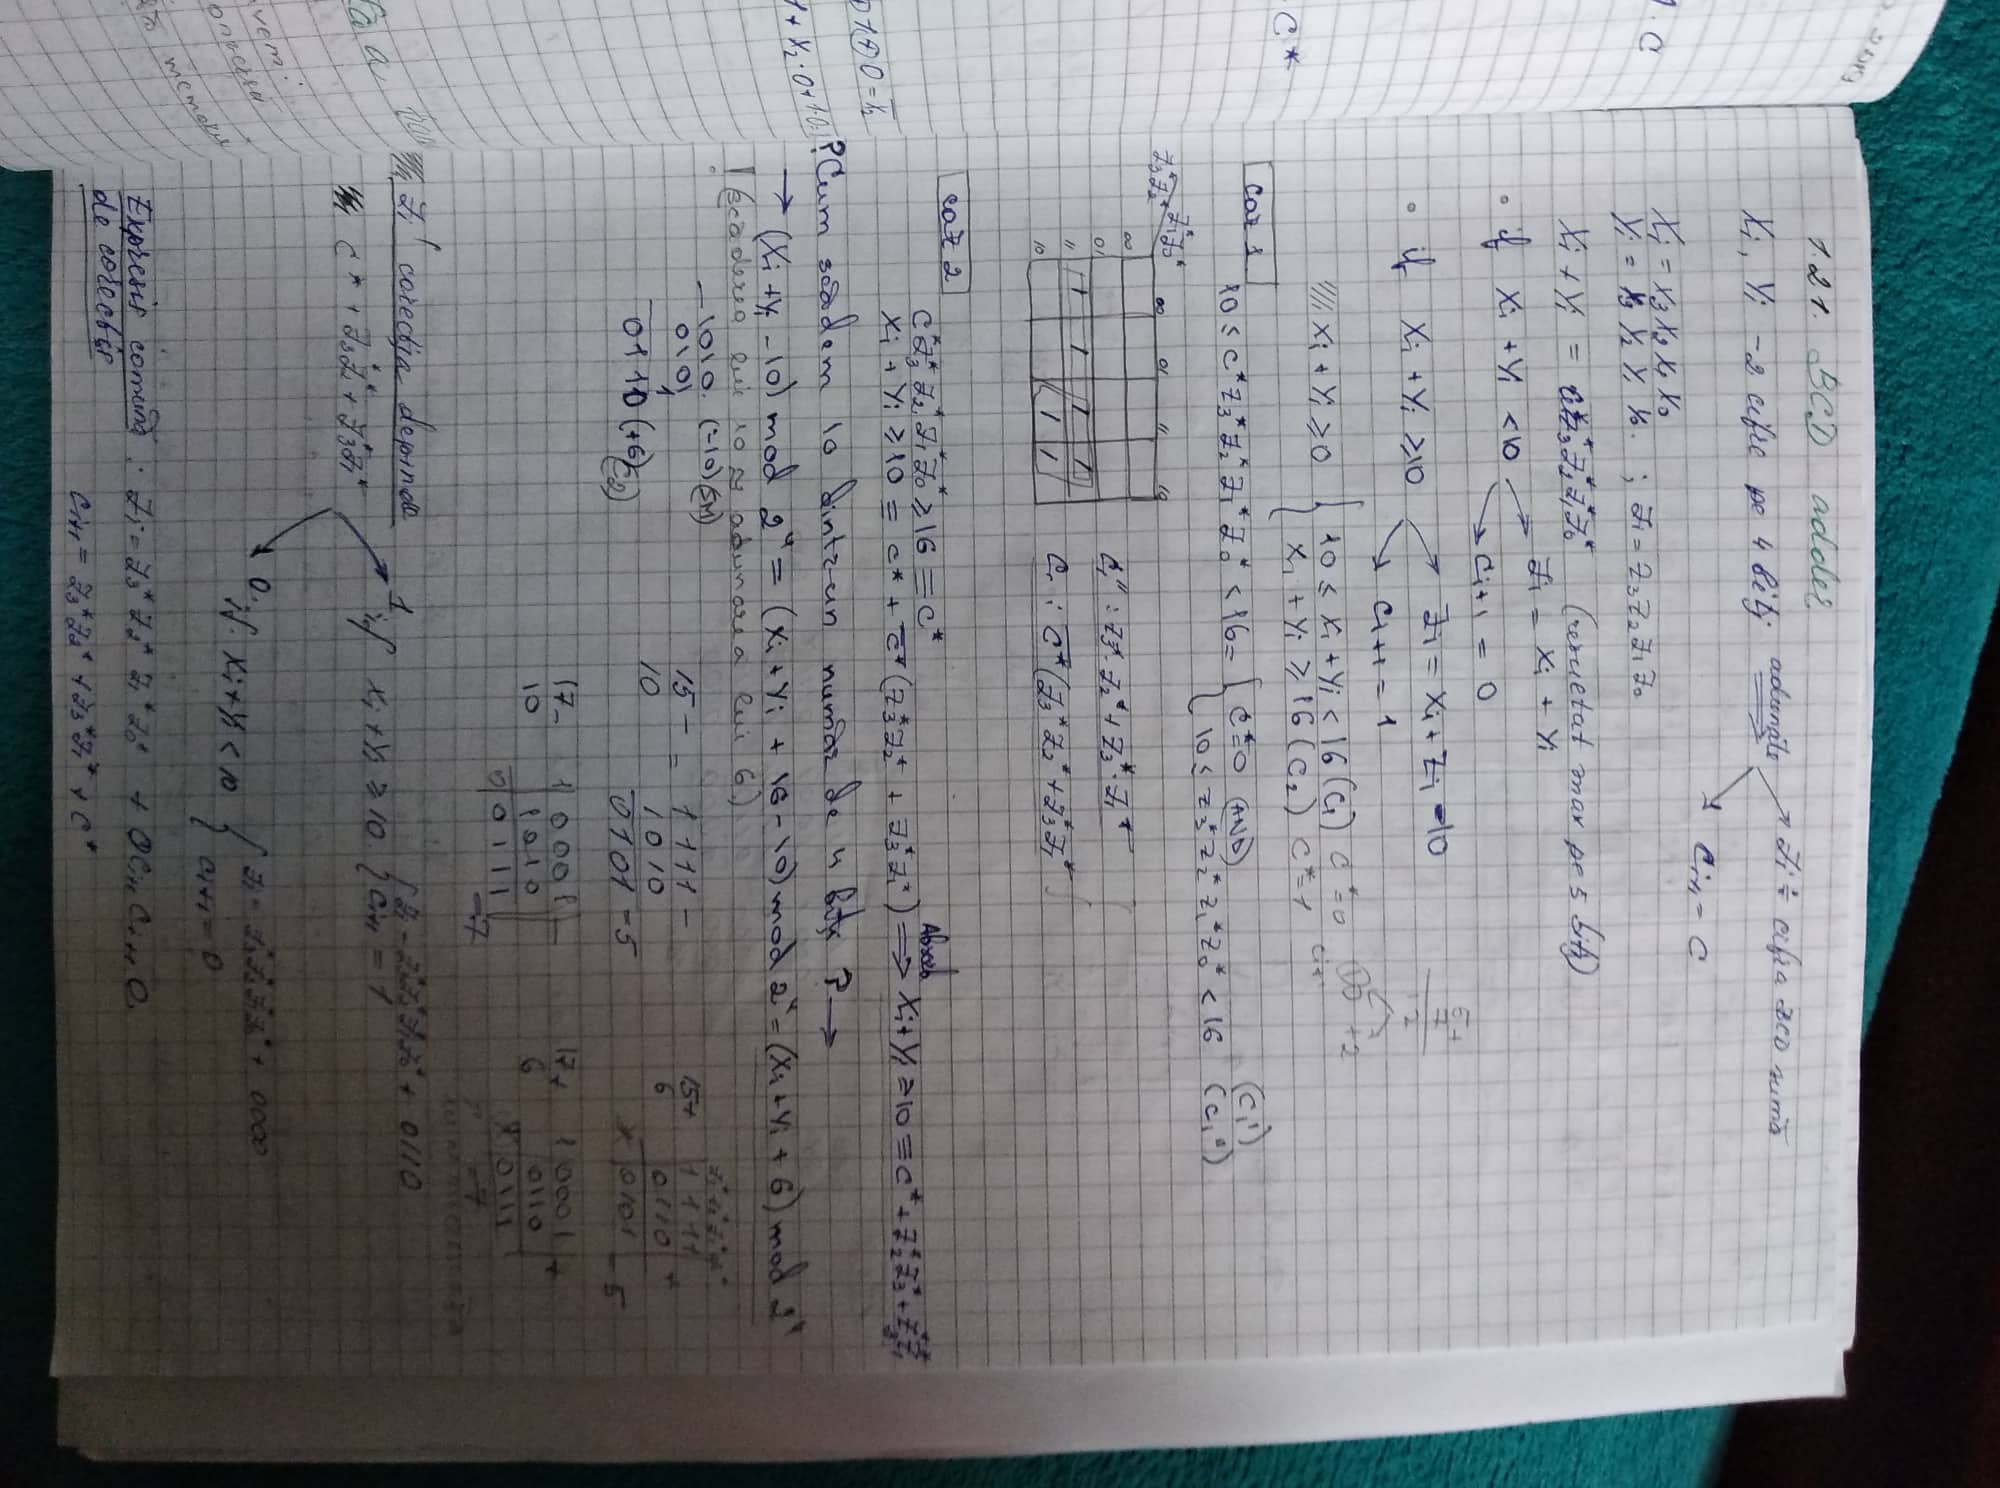 1.2.1. BCD adder
Xi, Yi - 2 cifre pe 4 biți adunate → Zi = cifra
→ Ci+1 = C
Xi = X3 X2 X1 X0
Yi = Y3 Y2 Y1 Y0 ; Zi = Z3 Z2 Z1 Z0
Xi + Yi = C* Z3* Z2* Z1* Z0* (rezultat max pe 5 biți)
• if Xi + Yi < 10 → Zi = Xi + Yi
→ Ci+1 = 0
• if Xi + Yi ≥ 10 → Zi = Xi + Zi - 10
→ Ci+1 = 1
Xi + Yi ≥ 0 { 10 ≤ Xi + Yi < 16 (C1) C* = 0
Xi + Yi ≥ 16 (C2) C* = 1
caz 1
10 ≤ C* Z3* Z2* Z1* Z0* < 16 = { C* = 0 (AND) (C1')
10 ≤ Z3* Z2* Z1* Z0* < 16 (C1'')
Z3*Z2* Z1*Z0* 00 01 11 10
00
01
11 1 1 1 1
10 1 1
C1'' : Z3* Z2* + Z3* Z1*
C1 : C̅* (Z3* Z2* + Z3* Z1*)
caz 2
C* Z3* Z2* Z1* Z0* ≥ 16 ≡ C*
Xi + Yi ≥ 10 ≡ C* + C̅* (Z3* Z2* + Z3* Z1*) ⟹ Xi + Yi ≥ 10 ≡ C* + Z2* Z3* + Z3* Z1*
? Cum scădem 10 dintr-un număr de 4 biți ? →
→ (Xi + Yi - 10) mod 2⁴ = (Xi + Yi + 16 - 10) mod 2⁴ = (Xi + Yi + 6) mod 2⁴
! (scăderea lui 10 ⇔ adunarea lui 6)
- 1010 (-10) (SM)
0101
0110 (+6) (C2)
15 - = 1111 -
10 1010
0101 = 5
15 + 1111 +
6 0110
0101 = 5
17 - 10001 -
10 1010
00111 = 7
17 + 10001 +
6 0110
10111
7
Zi corecția depinde
C* + Z3* Z2* + Z3* Z1*
1 if Xi + Yi ≥ 10 { Z = Z3* Z2* Z1* Z0* + 0110
Ci+1 = 1
0 if Xi + Yi < 10 { Zi = Z3* Z2* Z1* Z0* + 0000
Ci+1 = 0
Expresii comună : Zi = Z3* Z2* Z1* Z0* + 0 Ci+1 Ci+1 0
de corecție
Ci+1 = Z3* Z2* + Z3* Z1* + C*